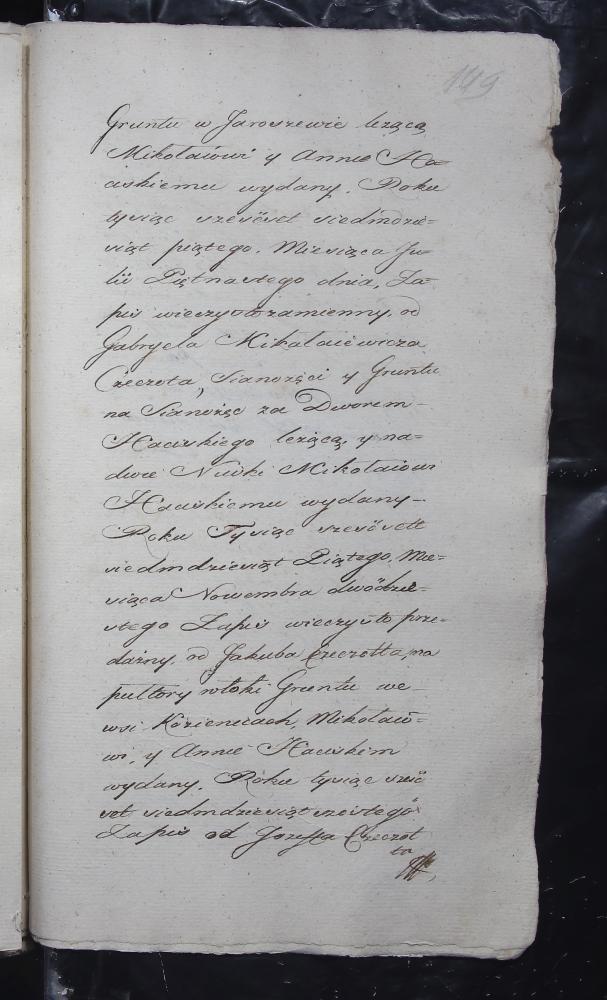 149
Gruntu w Jaroszewie leżącą
Mikołaiowi y Annie Ha=
askiemu wydany. Roku
tysiąc szesćset siedmdzie=
siąt piątego. Miesiąca Ju=
lii Piętnastego dnia, Za=
pis wieczystozamienny, od
Gabryela Mikołaiewicza
Czeczota, Sianożęci y Gruntu
na Sianożęc za Dworem
Haciskiego leżącą, y na=
dwie Niwki Mikołaiowi
Haciskiemu wydany-
Roku Tysiąc szesćsett
siedmdziesiąt Piątego, Mie=
siąca Nowembra dwódzie=
stego Zapis wieczysto prze=
dażny, od Jakuba Czeczotta, na
pułtory włoki Gruntu we-
wsi Kozienicach, Mikołaió=
wi, y Annie Haciskim
wydany. Roku tysiąc sześć
set siedmdziesiąt szóstego
Zapis od Jozeffa Czeczot
ta